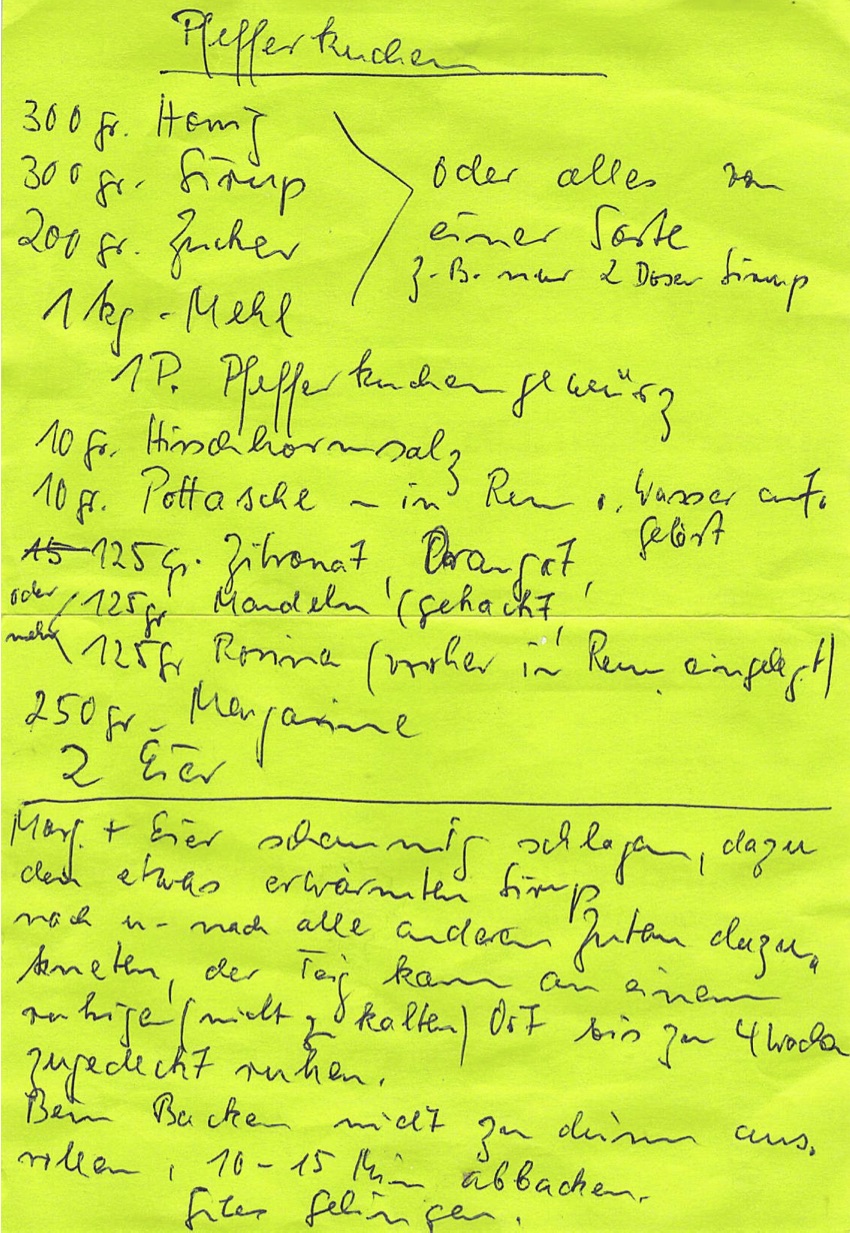 Pfefferkuchen
300 gr. Honig
300 gr. Sirup
200 gr. Zucker
1 kg - Mehl
oder alles von
einer Sorte
z. B. nur 2 Dosen Sirup
1 P. Pfefferkuchengewürz
10 gr. Hirschhornsalz
10 gr. Pottasche - in Rum o. Wasser auf-
gelöst
125 gr. Zitronat, Orangat,
oder
mehr
125 gr Mandeln (gehackt,
125 gr Rosinen (vorher in Rum eingelegt)
250 gr - Margarine
2 Eier
Marg. + Eier schaumig schlagen, dazu
den etwas erwärmten Sirup
nach u- nach alle anderen Zutaten dazu-
kneten, der Teig kann an einem
ruhigen (nicht zu kalten) Ort bis zu 4 Wochen
zugedeckt ruhen.
Beim Backen nicht zu dünn aus-
rollen, 10 - 15 Min abbacken.
Gutes Gelingen.